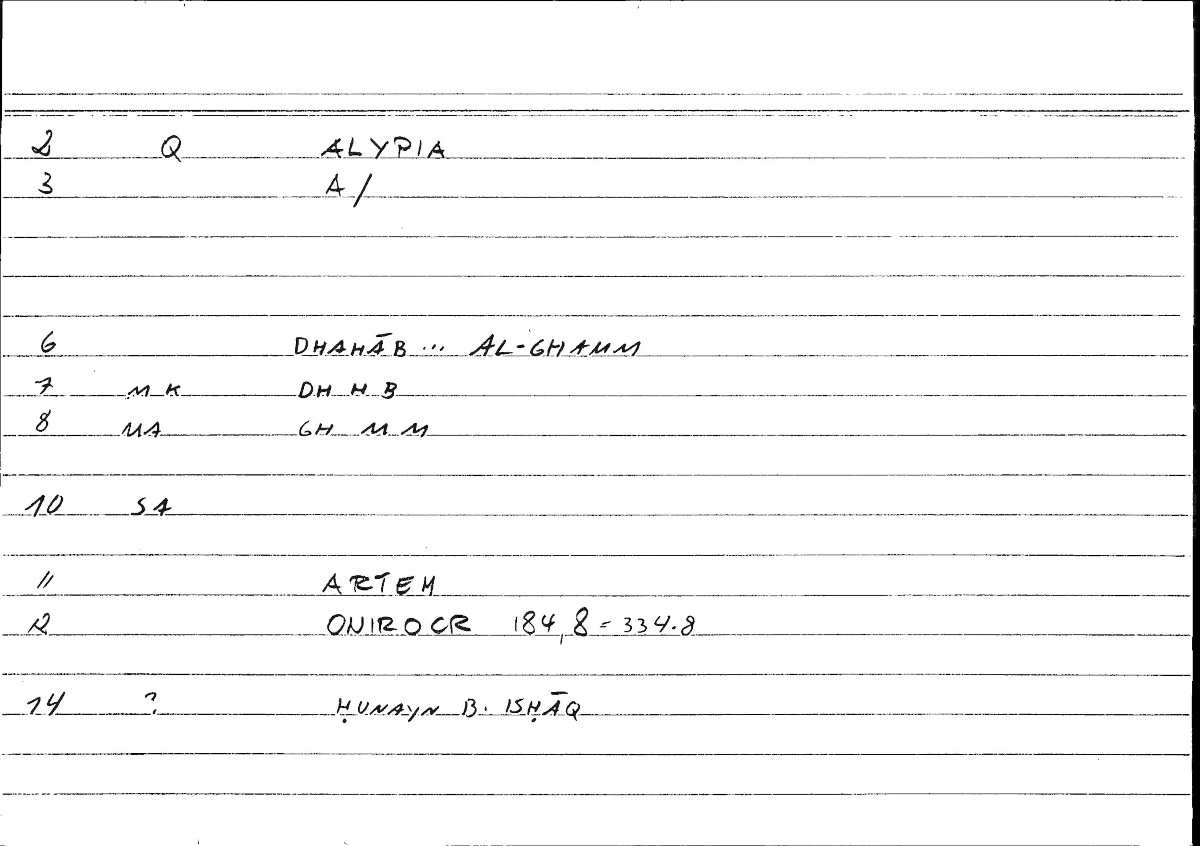 2 Q ALYPIA
3 A/
6 DHAHĀB ... AL-GHAMM
7 MK DH H B
8 MA GH M M
10 SA
11 ARTEM
12 ONIROCR 184,8 = 334.8
14 ? ḤUNAYN B. ISḤĀQ